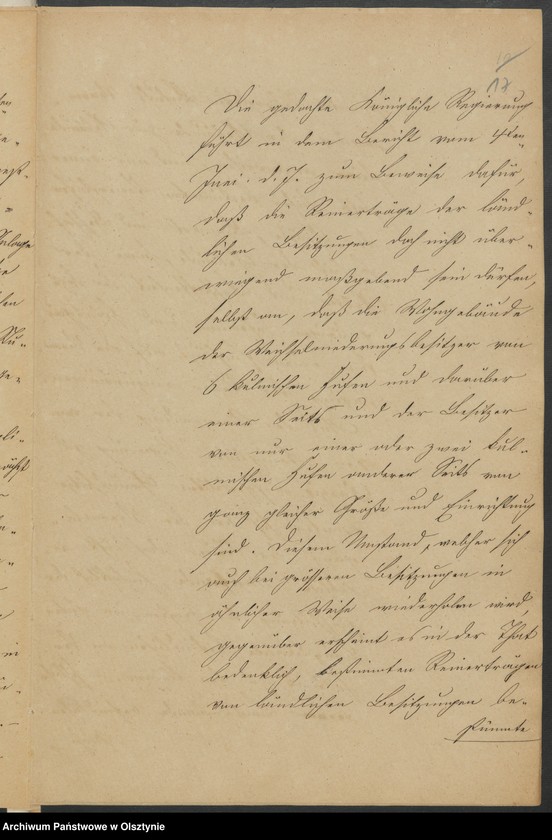 17
Die gedachte Königliche Regierung
führt in dem Bericht vom 4ten
Juni d. J. zum Beweise dafür,
daß die Reinerträge der länd-
lichen Besitzungen doch nicht über-
wiegend maßgebend sein dürfen,
selbst an, daß die Wohngebäude
der Weichselniederungsbesitzer von
6 kulmischen Hufen und darüber
einer Seits und der Besitzer
von nur einer oder zwei kul-
mischen Hufen anderer Seits von
ganz gleicher Größe und Einrichtung
sind. Diesem Umstand, welcher sich
auch bei grösseren Besitzungen in
ähnlicher Weise wiederholen wird,
gegenüber erscheint es in der That
bedenklich, bestimmten Reinerträgen
von ländlichen Besitzungen be-
stimmte
Archiwum Państwowe w Olsztynie